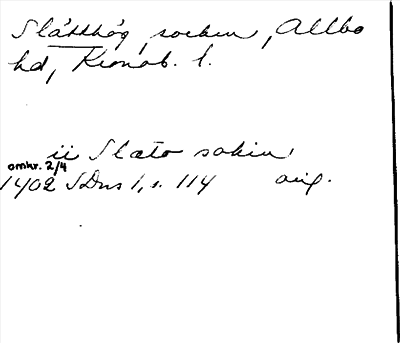 Slätthög socken, Allbo
hd, Kronob. l.
ii Slæto sokin
omkr. 2/4
1402 SDns 1, s. 114 orig.